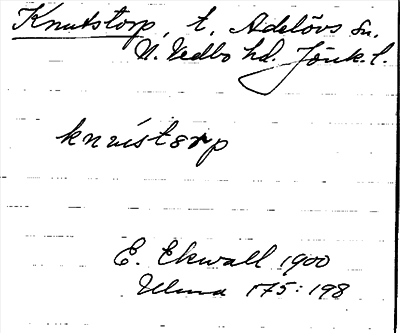 Knutstorp, t. Adelövs sn.
N. Vedbo hd. Jönk. l.
knústorp
E. Ekwall 1900
175:198